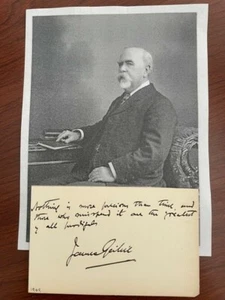 Nothing is more precious than time, and
those who misspend it are the greatest
of all prodigals
James Geikie